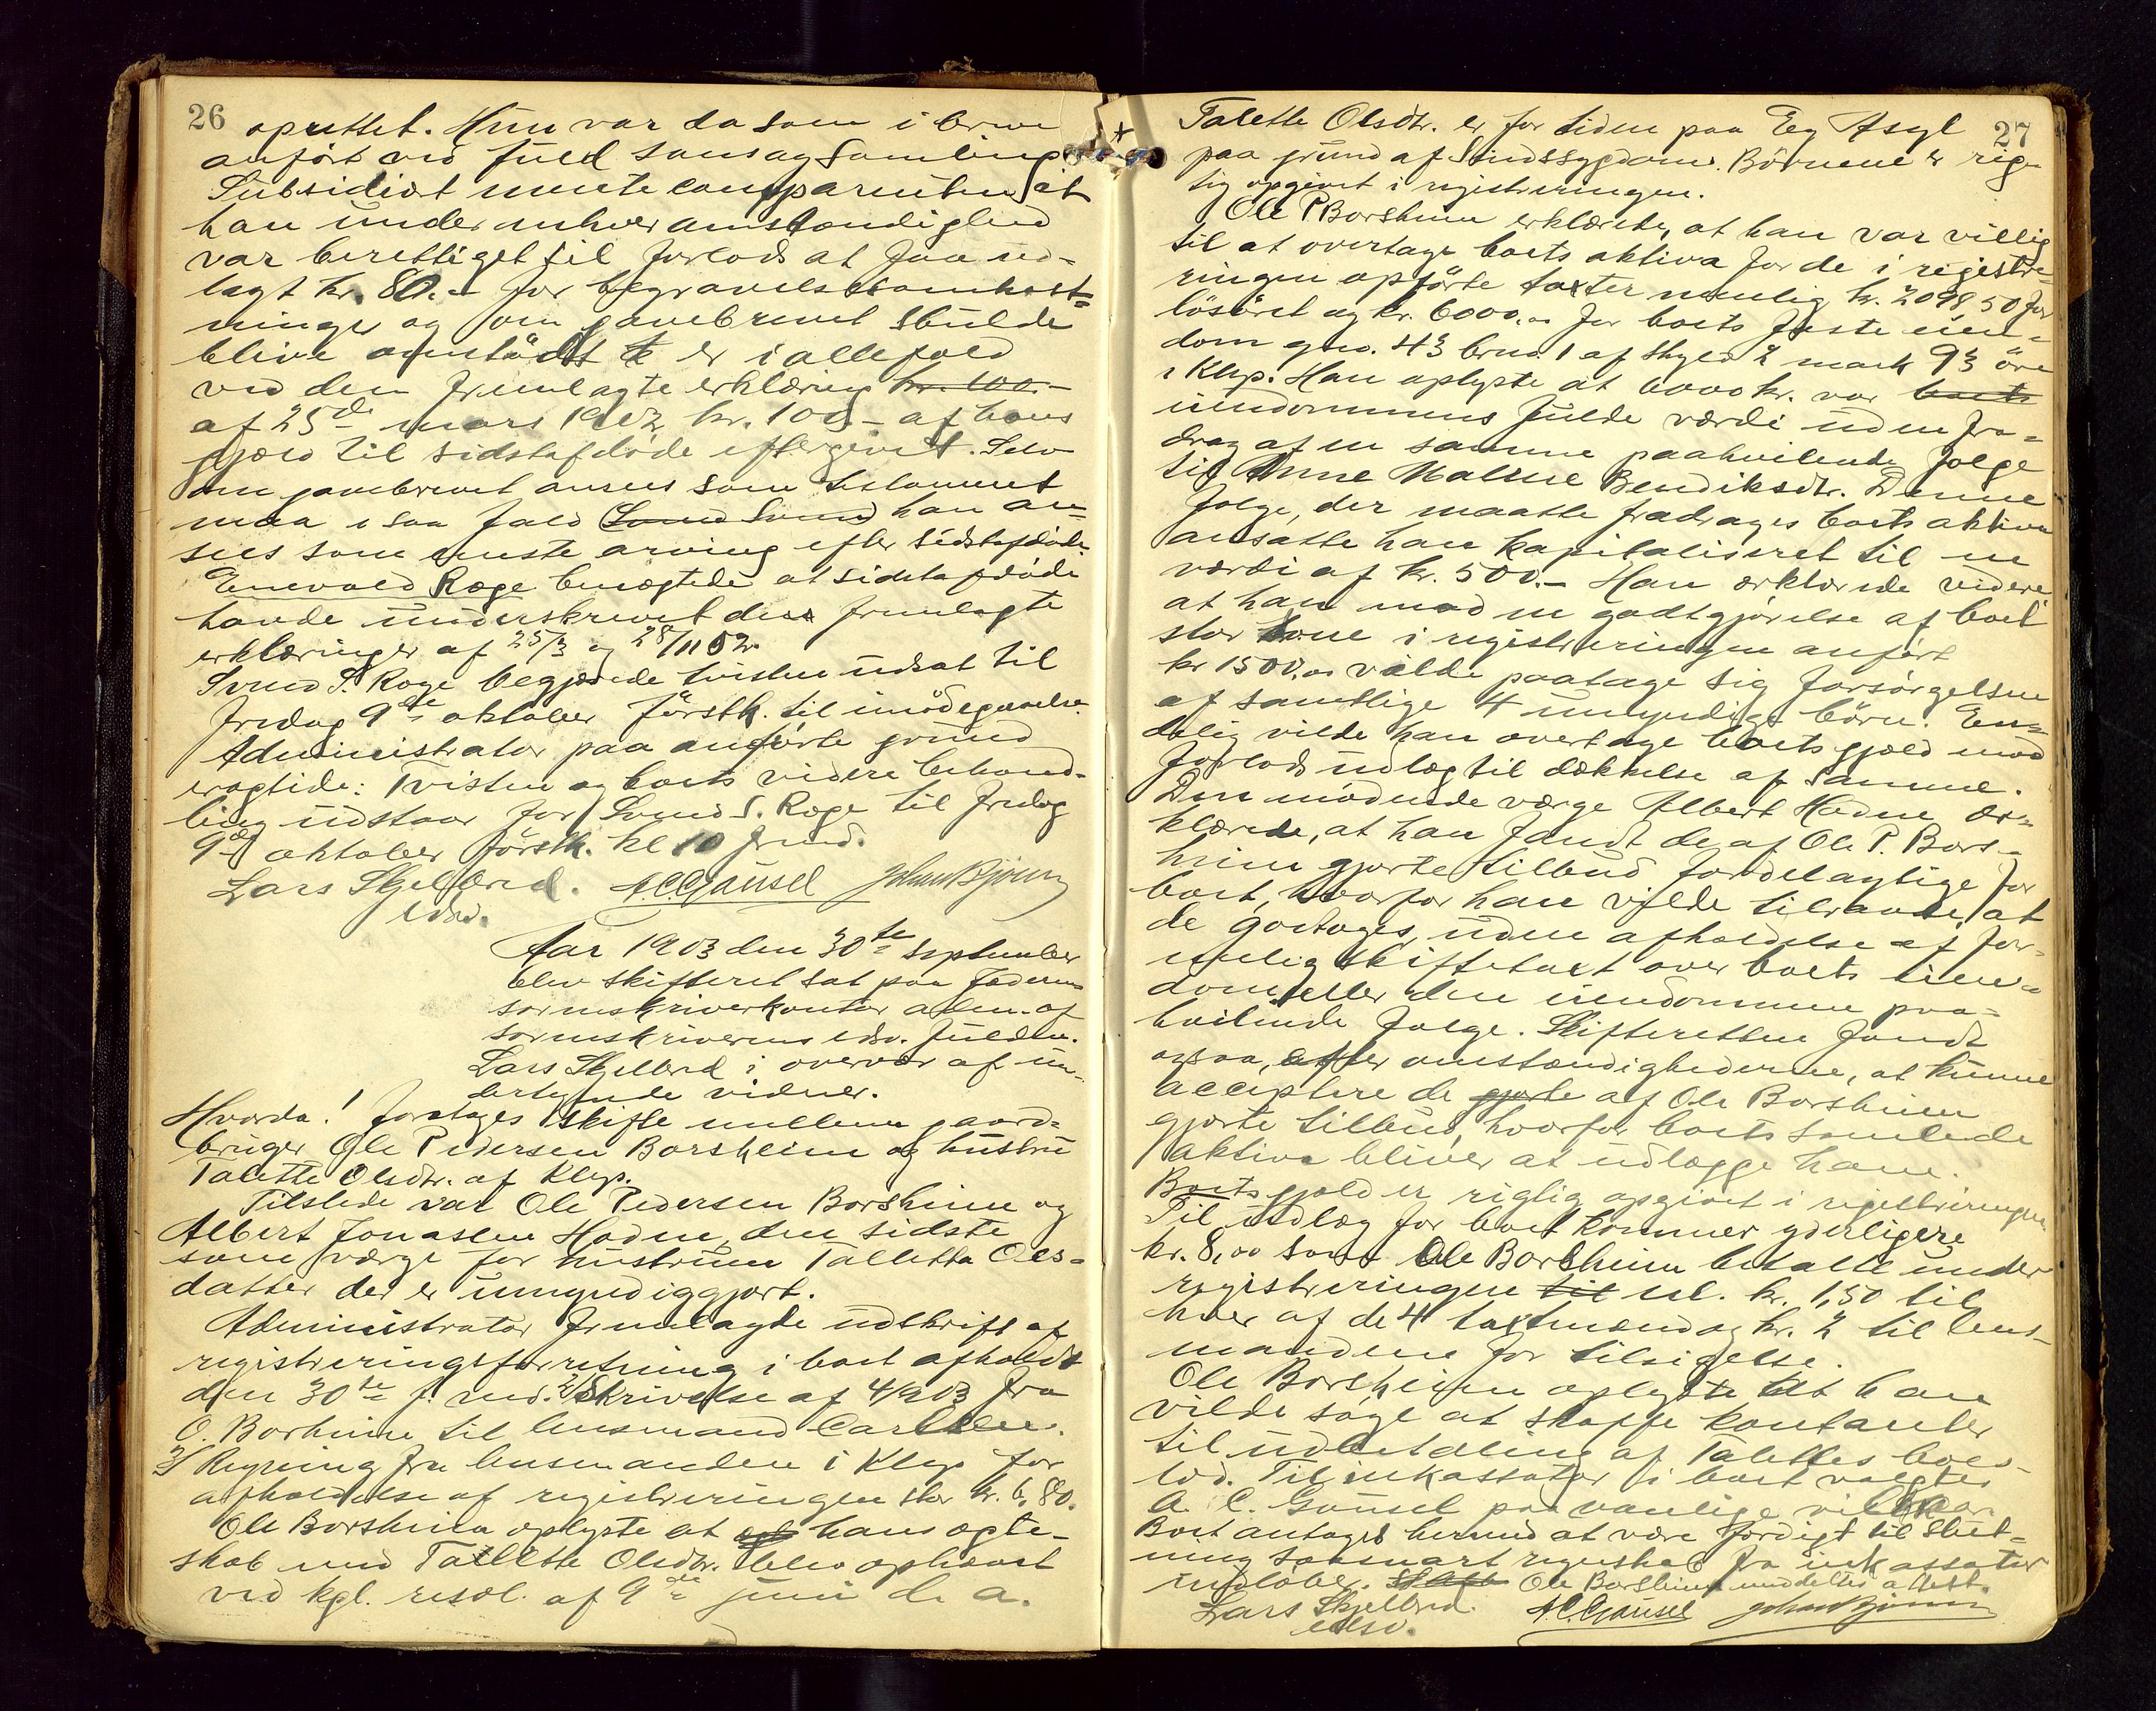 26
oprettet. Hun var da som i brevet
anført ved fuld sans og samling.
Subsidiært mente comparenten at
han under enhver omstændighed
var berettiget til forlods at faa ud-
lagt kr. 80.- for begravelsesomkost-
ninger og om gavebrevet skulde
blive omstødt er i allefald
ved den fremlagte erklæring kr. 100.-
af 25de mars 1902 kr. 100.- af hans
gjæld til sidstafdøde eftergivet. Selv
om gavebrevet ansees som testament
maa i saa fald Svend Svend han an-
sees som eneste arving efter sidstafdøde.
Enevald Røge benægtede at sidstafdøde
havde underskrevet de fremlagte
erklæringer af 25/3 og 28/11 02.
Svend S. Røge begjærede tvisten udsat til
fredag 9de oktober førstk. til imødegaaelse.
Administrator paa anførte grund
eragtede: Tvisten og boets videre behand-
ling udstaar for Svend S. Røge til fredag
9de oktober førstk. kl 10 fmd.
Lars Skjelbred. A.C. Gausel Johan Bjørn
edsv.
Aar 1903 den 30te september
blev skifteret sat paa Jæderens
sorenskriverkontor adm. af
sorenskriverens edsv. fuldm.
Lars Skjelbred i overvær af un-
dertegnede vidner.
Hvorda! foretages skifte mellem gaard-
bruger Ole Pedersen Borsheim og hustru
Talette Olsdtr. af Klep.
Tilstede var Ole Pedersen Borsheim og
Albert Jonassen Hodne, den sidste
som værge for hustruen Talletta Ols-
datter der er umyndiggjort.
Administrator fremlagde udskrift af
registreringsforretning i boet afholdt
den 30te f. md. 2/ Skrivelse af 4/9 03 fra
O. Borheim til lensmand Carlsen.
3/ Regning fra lensmanden i Klep for
afholdelse af registreringen stor kr. 6,80.
Ole Borsheim oplyste at hans ægte-
skab med Talette Olsdtr. blev ophævet
ved kgl. resol. af 9de juni d. a.
27
Talette Olsdtr. er for tiden paa Eg Asyl
paa grund af Sindssygdom. Børnene er rig-
tig opgivet i registreringen.
Ole P Borsheim erklærede, at han var villig
til at overtage boets aktiva for de i registre-
ringen opførte taxter nemlig kr. 2098,50 for
løsøret og kr. 6000.00 for boets faste eien-
dom gno. 43 brno. 1 af skyld 2 mark 93 øre
i Klep. Han oplyste at 6000 kr. var boets
eiendommens fulde værdi uden fra-
drag af en samme paahvilende følge
til Anne Malene Bendiksdtr. Denne
følge, der maatte fradrages boets aktiva
ansatte han kapitaliseret til en
værdi af kr. 500.- Han erklærede videre
at han mod en godtgjørelse af boet
stor som i registreringen anført
kr 1500.00 vilde paatage sig forsørgelsen
af samtlige 4 umyndige børn. En-
delig vilde han overtage boets gjæld mod
forlods udlæg til dækkelse af samme.
Den mødende værge Albert Hodne er-
klærede, at han fandt de af Ole P. Bors-
heim gjorte tilbud fordelagtige for
boet, hvorfor han vilde tilraade, at
de godtages uden afholdelse af for-
melig skiftetaxt over boets eien-
dom eller den eiendommen paa-
hvilende følge. Skifteretten fandt
ogsaa, efter omstændighederne, at kunne
acceptere de gjorte af Ole Borsheim
gjorte tilbud, hvorfor boets samlede
aktiva bliver at udlægge ham.
Boets gjæld er rigtig opgivet i registreringen.
Til udlæg for boet kommer yderligere
kr. 8,00 som Ole Borsheim betalte under
registreringen til nl. kr. 1,50 til
hver af de 4 taxtmænd og kr. 2 til lens-
mandene for tilsigelse.
Ole Borsheim oplyste at han
vilde søge at skaffe kontanter
til udbetaling af Talettes boes-
lod. Til inkassator i boet valgtes
A. C. Gausel paa vanlige vilkaar.
Boet antages hermed at være færdigt til slut-
ning saasnart regnskab fra inkassator
indløber. Ole Borsheim meddeltes attest.
Lars Skjelbred. A.C. Gausel Johan Bjørn
edsv.